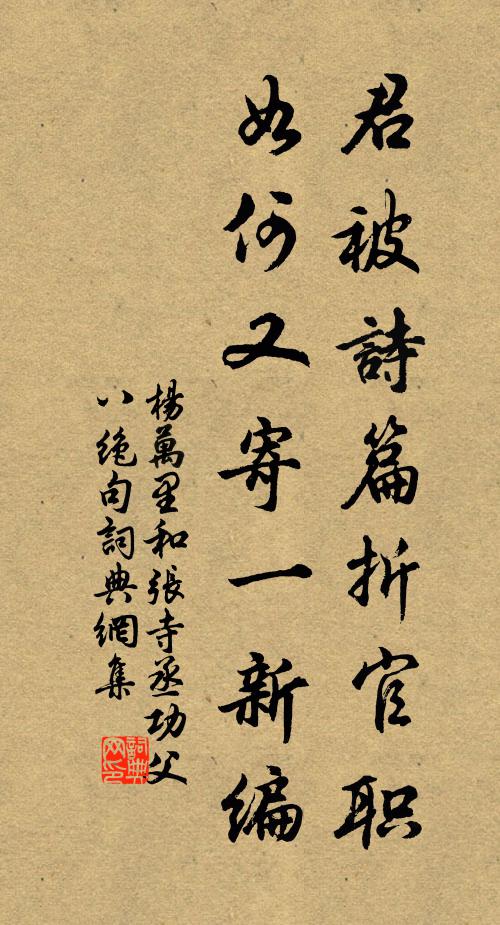 君被詩篇折官职
如何又寄一新编
楊萬里和張寺丞功父
八絶句詞典網集
詞典网印